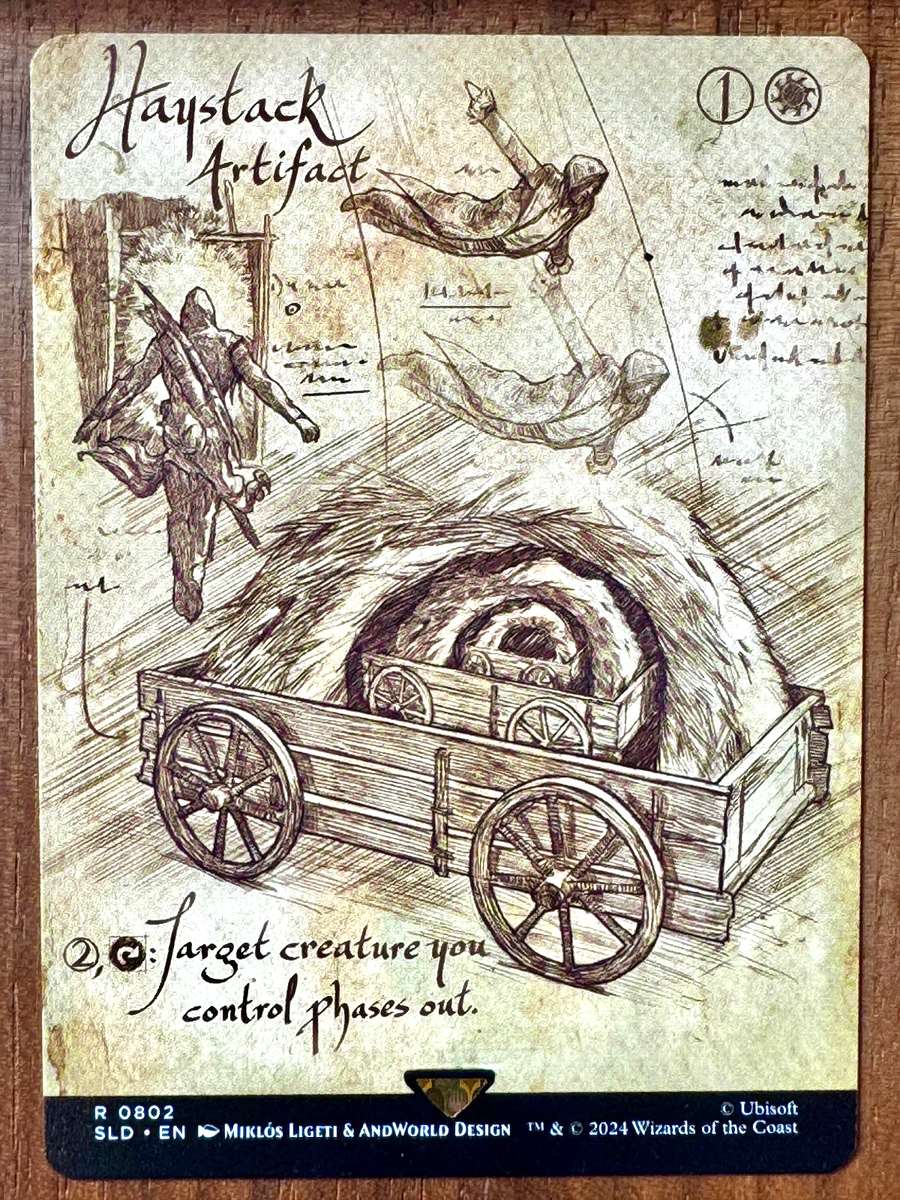 Haystack
Artifact
1
2, : Target creature you
control phases out.
R 0802
SLD • EN Miklós Ligeti & AndWorld Design
© Ubisoft
™ & © 2024 Wizards of the Coast